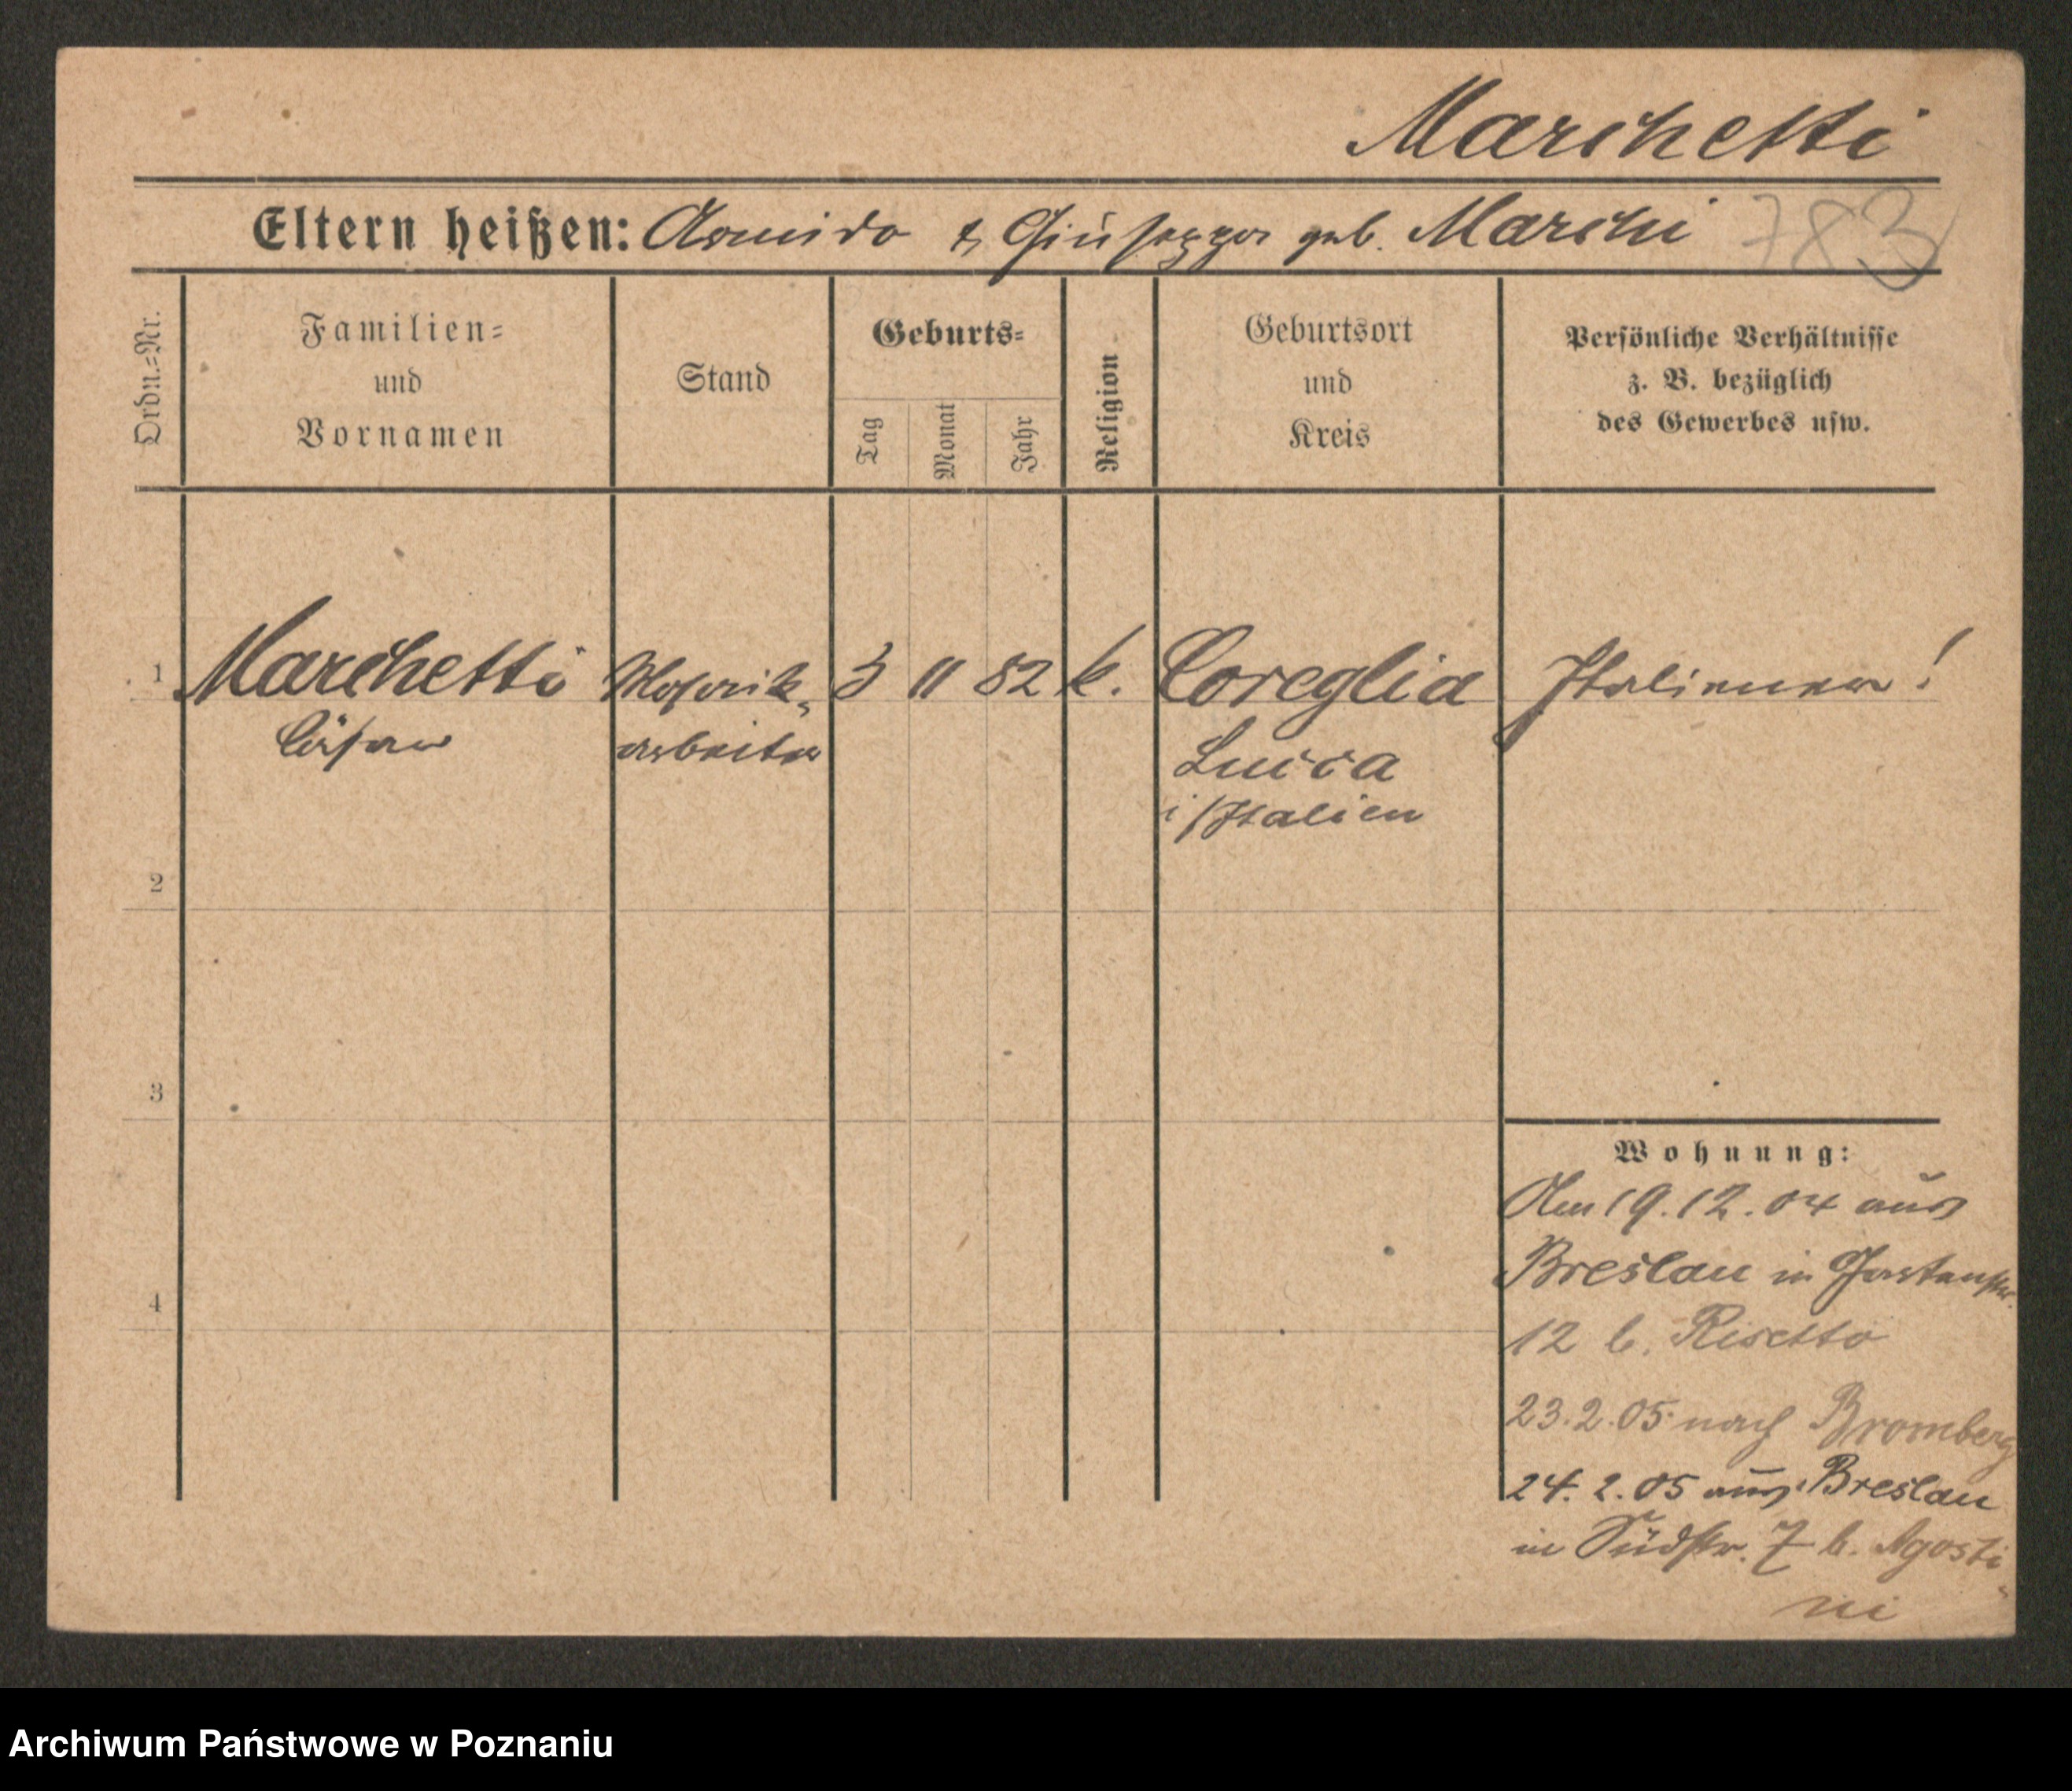 Marchetti
Eltern heißen: Armido & Giuseppa geb. Marchi 783
Ordn.=Nr.
Familien=
und
Vornamen
Stand
Geburts=
Tag
Monat
Jahr
Religion
Geburtsort
und
Kreis
Persönliche Verhältnisse
z. B. bezüglich
des Gewerbes usw.
1 Marchetti Mosaik= 3 11 82 k. Coreglia Italiener!
Cäsar arbeiter Lucca
i/Italien
2
3
4
Wohnung:
Am 19.12.04 aus
Breslau in Gartenstr.
12 b. Risetto
23.2.05 nach Bromberg
24.2.05 aus Breslau
in Südstr. 7 b. Agosti=
ni
Archiwum Państwowe w Poznaniu